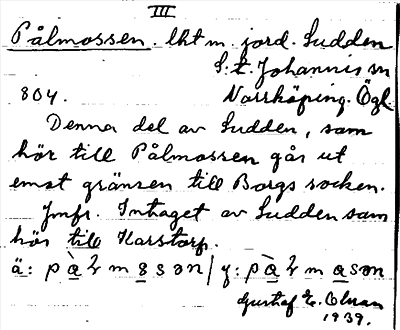 III
Pålmossen. lht m. jord. Sudden
S:t Johannis sn
804. Norrköping. Ögl
Denna del av Sudden, som
hör till Pålmossen går ut
emot gränsen till Borgs socken.
Jmfr. Intaget av Sudden som
hör till Karstorp.
Gustaf E. Olsson
1939.